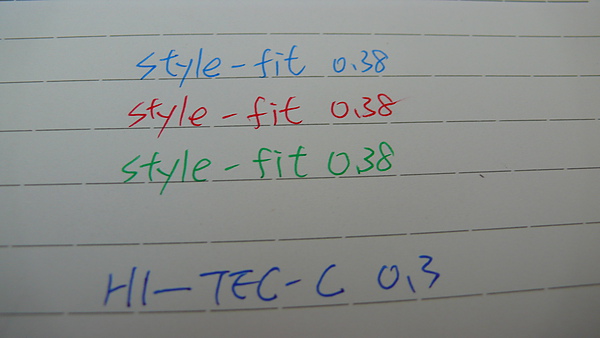 style-fit 0.38
style-fit 0.38
style-fit 0.38
HI-TEC-C 0.3